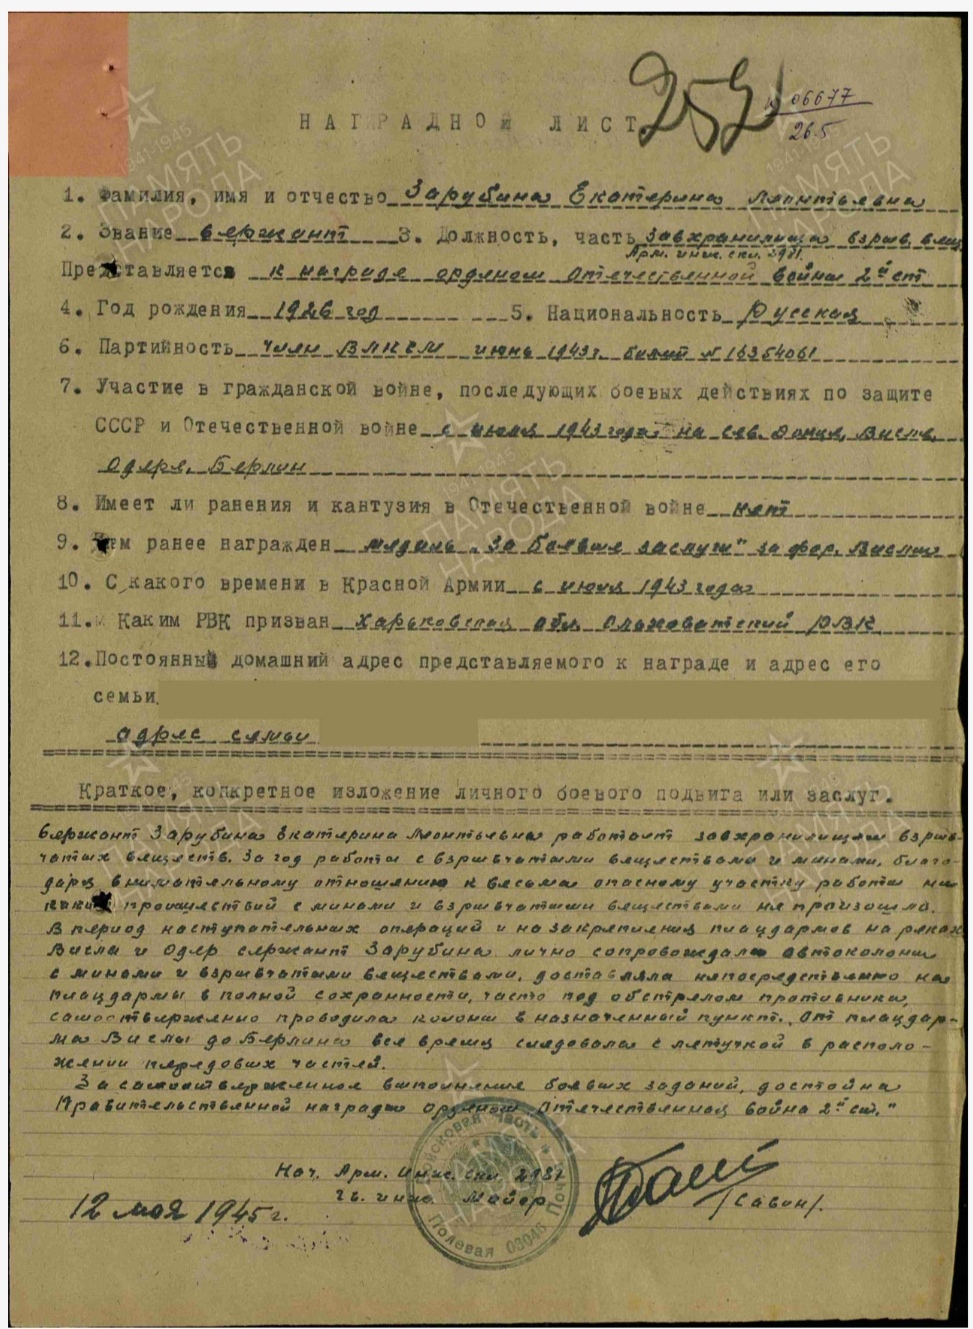 НАГРАДНОЙ ЛИСТ
№ 06677
26.5
1. Фамилия, имя и отчество Зарубина Екатерина Леонтьевна
2. Звание Сержант 3. Должность, часть Завхранилища взрыв. вещ.
Арм. инж. скл. 2981.
Представляется к награде орденом Отечественной война 2й ст
4. Год рождения 1926 год 5. Национальность Русская
6. Партийность член ВЛКСМ июнь 1943 г. билет № 16354061
7. Участие в гражданской войне, последующих боевых действиях по защите
СССР и Отечественной войне с июля 1943 года. на сев. Донце, Висле,
Одере, Берлин
8. Имеет ли ранения и кантузия в Отечественной войне нет
9. Чем ранее награжден медаль „За боевые заслуги" за фор. Вислы
10. С какого времени в Красной Армии с июля 1943 года
11. Каким РВК призван Харьковской обл Ольховатский РВК
12. Постоянный домашний адрес представляемого к награде и адрес его
семьи
адрес семьи
Краткое, конкретное изложение личного боевого подвига или заслуг.
Сержант Зарубина Екатерина Леонтьевна работает завхранилищем взрыв-
чатых веществ. За год работы с взрывчатыми веществами и минами, благо-
даря внимательному отношению к весьма опасному участку работы ни
каких проишествий с минами и взрывчатыми веществами не произошло.
В период наступательных операций и на закрепления плацдармов на реках
Висла и Одер сержант Зарубина лично сопровождала автоколонны
с минами и взрывчатыми веществами, доставляла непосредственно на
плацдармы в полной сохранности, часто под обстрелом противника,
самоотверженно проводила колоны в назначенный пункт. От плацдар-
ма Вислы до Берлина все время следовала с летучкой в располо-
жении передовых частей.
За самоотверженное выполнение боевых заданий, достойна
Правительственной награды орденом „Отечественная война 2й ст."
Нач. Арм. инж. скл. 2981
Гв. инж. Майор
/Савин/.
12 мая 1945 г.
Войсковая часть
Полевая Почта 03045